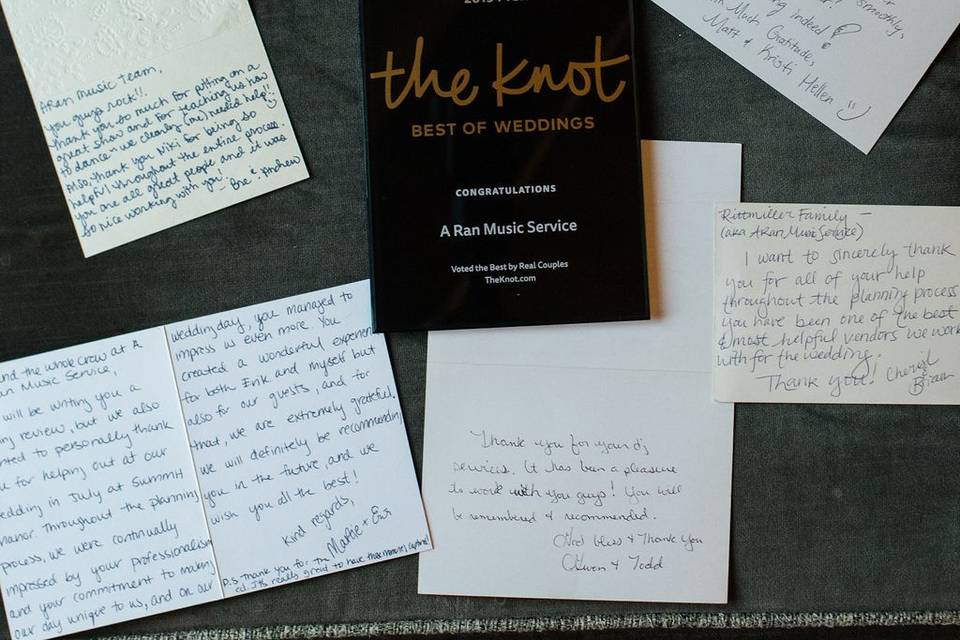 ARan Music Team,
you guys rock!!
Thank you so much for putting on a
great show and for teaching us how
to dance - we clearly (me) needed help!!
Also, thank you Niki for being so
helpful throughout the entire process.
You are all great people and it was
so nice working with you!
Bre & Andrew
the knot
BEST OF WEDDINGS
CONGRATULATIONS
A Ran Music Service
Voted the Best by Real Couples
TheKnot.com
smoothly,
indeed!
Much Gratitude,
Matt & Kristi Hellen
Rittmiller Family —
(aka ARan Music Service)
I want to sincerely thank
you for all of your help
throughout the planning process
you have been one of the best
& most helpful vendors we work
with for the wedding.
Thank you! Cheryl
Brian
and the whole crew at A
an Music Service,
will be writing you a
ng review, but we also
nted to personally thank
u for helping out at our
edding in July at Summit
Manor. Throughout the planning
process, we were continually
impressed by your professionalism
and your commitment to making
our day unique to us, and on our
wedding day, you managed to
impress us even more. You
created a wonderful experien
for both Erik and myself but
also for our guests, and for
that, we are extremely grateful.
We will definitely be recommending
you in the future, and we
wish you all the best!
Kind regards,
P.S. Thank you for the
cd. It's really great to have those
Thank you for your dj
services. It has been a pleasure
to work with you guys! You will
be remembered & recommended.
God bless & Thank you
& Todd